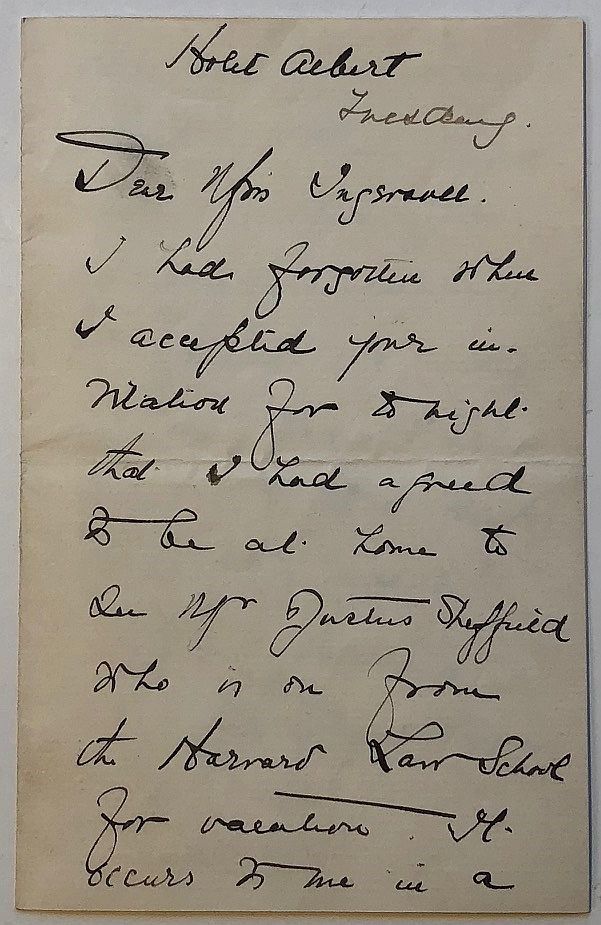 Hotel Albert
Tuesday.
Dear Miss Ingersoll.
I had forgotten when
I accepted your in-
vitation for to night
that I had agreed
to be at home to
see Mr Justus Sheffield
who is on from
the Harvard Law School
for vacation. It
occurs to me in a